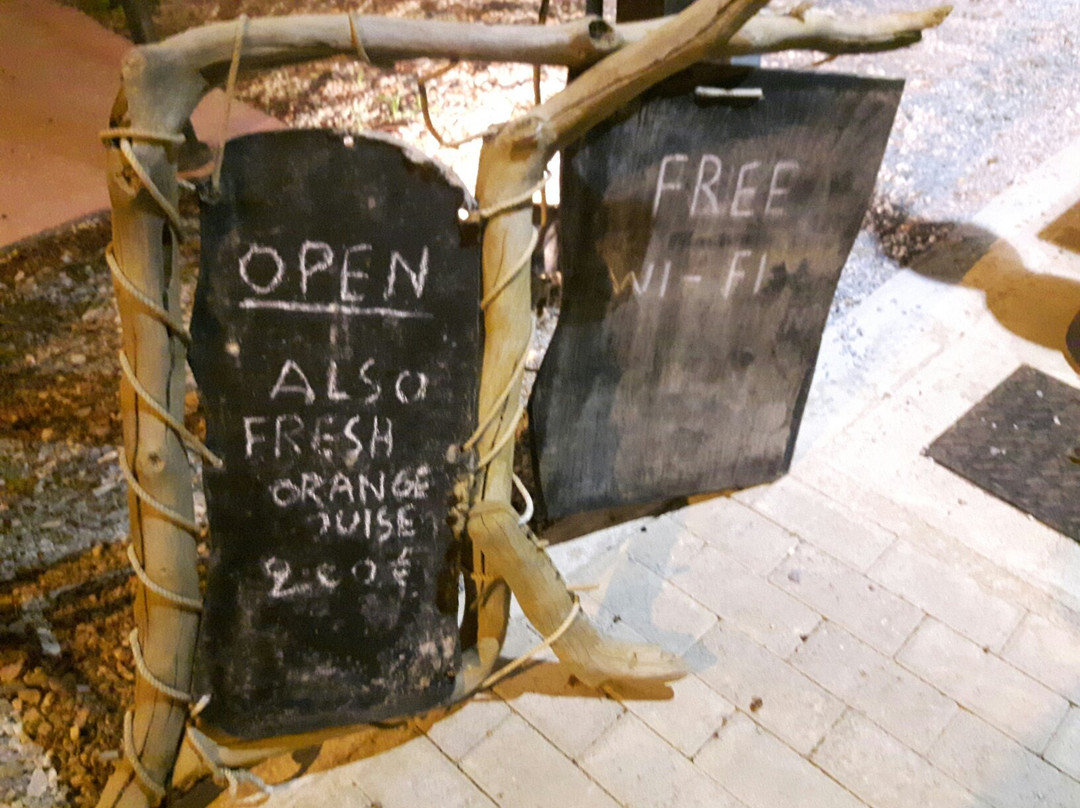 OPEN
ALSO
FRESH
ORANGE
JUISE
200€
FREE
WI-FI